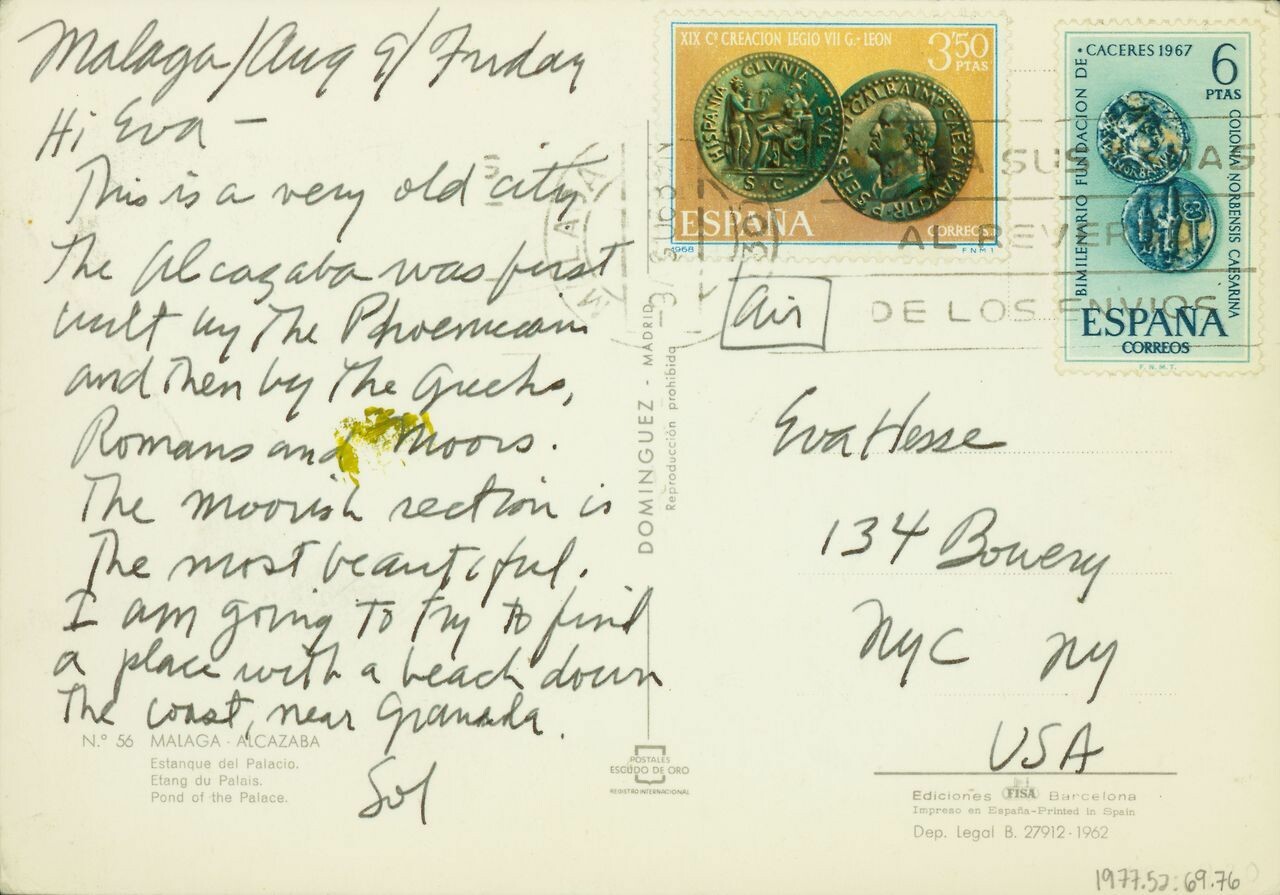 Malaga/Aug 9/Friday
Hi Eva –
This is a very old city
The Alcazaba was first
built by the Phoenicians
and then by the Greeks,
Romans and Moors.
The Moorish section is
the most beautiful.
I am going to try to find
a place with a beach down
the coast, near Granada.
Sol
N.º 56 MALAGA - ALCAZABA
Estanque del Palacio.
Etang du Palais.
Pond of the Palace.
DOMINGUEZ - MADRID
Reproducción prohibida
POSTALES
ESCUDO DE ORO
REGISTRO INTERNACIONAL
XIX Cº CREACION LEGIO VII G.- LEON
3,50
PTAS
HISPANIA CLVNIA SVL
S C
SER GALBA IMP CAESAR AVG TR P
ESPAÑA
CORREOS
1968
F N M T
• CACERES 1967
BIMILENARIO FUNDACION DE
COLONIA NORBENSIS CAESARINA
6
PTAS
ESPAÑA
CORREOS
F. N. M. T.
A SUS
AL REVE
DE LOS ENVIOS
air
Eva Hesse
134 Bowery
NYC NY
USA
Ediciones FISA Barcelona
Impreso en España-Printed in Spain
Dep. Legal B. 27912-1962
1977.52:69.76